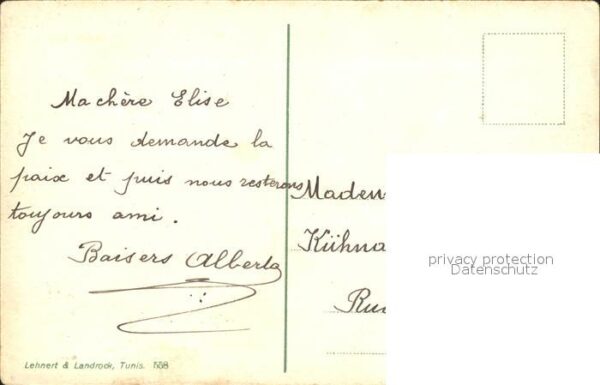 Ma chère Elise
Je vous demande la
paix et puis nous resterons
toujours ami.
Baisers Alberta
Madem
Kühna
Ru
privacy protection
Datenschutz
Lehnert & Landrock, Tunis. 558